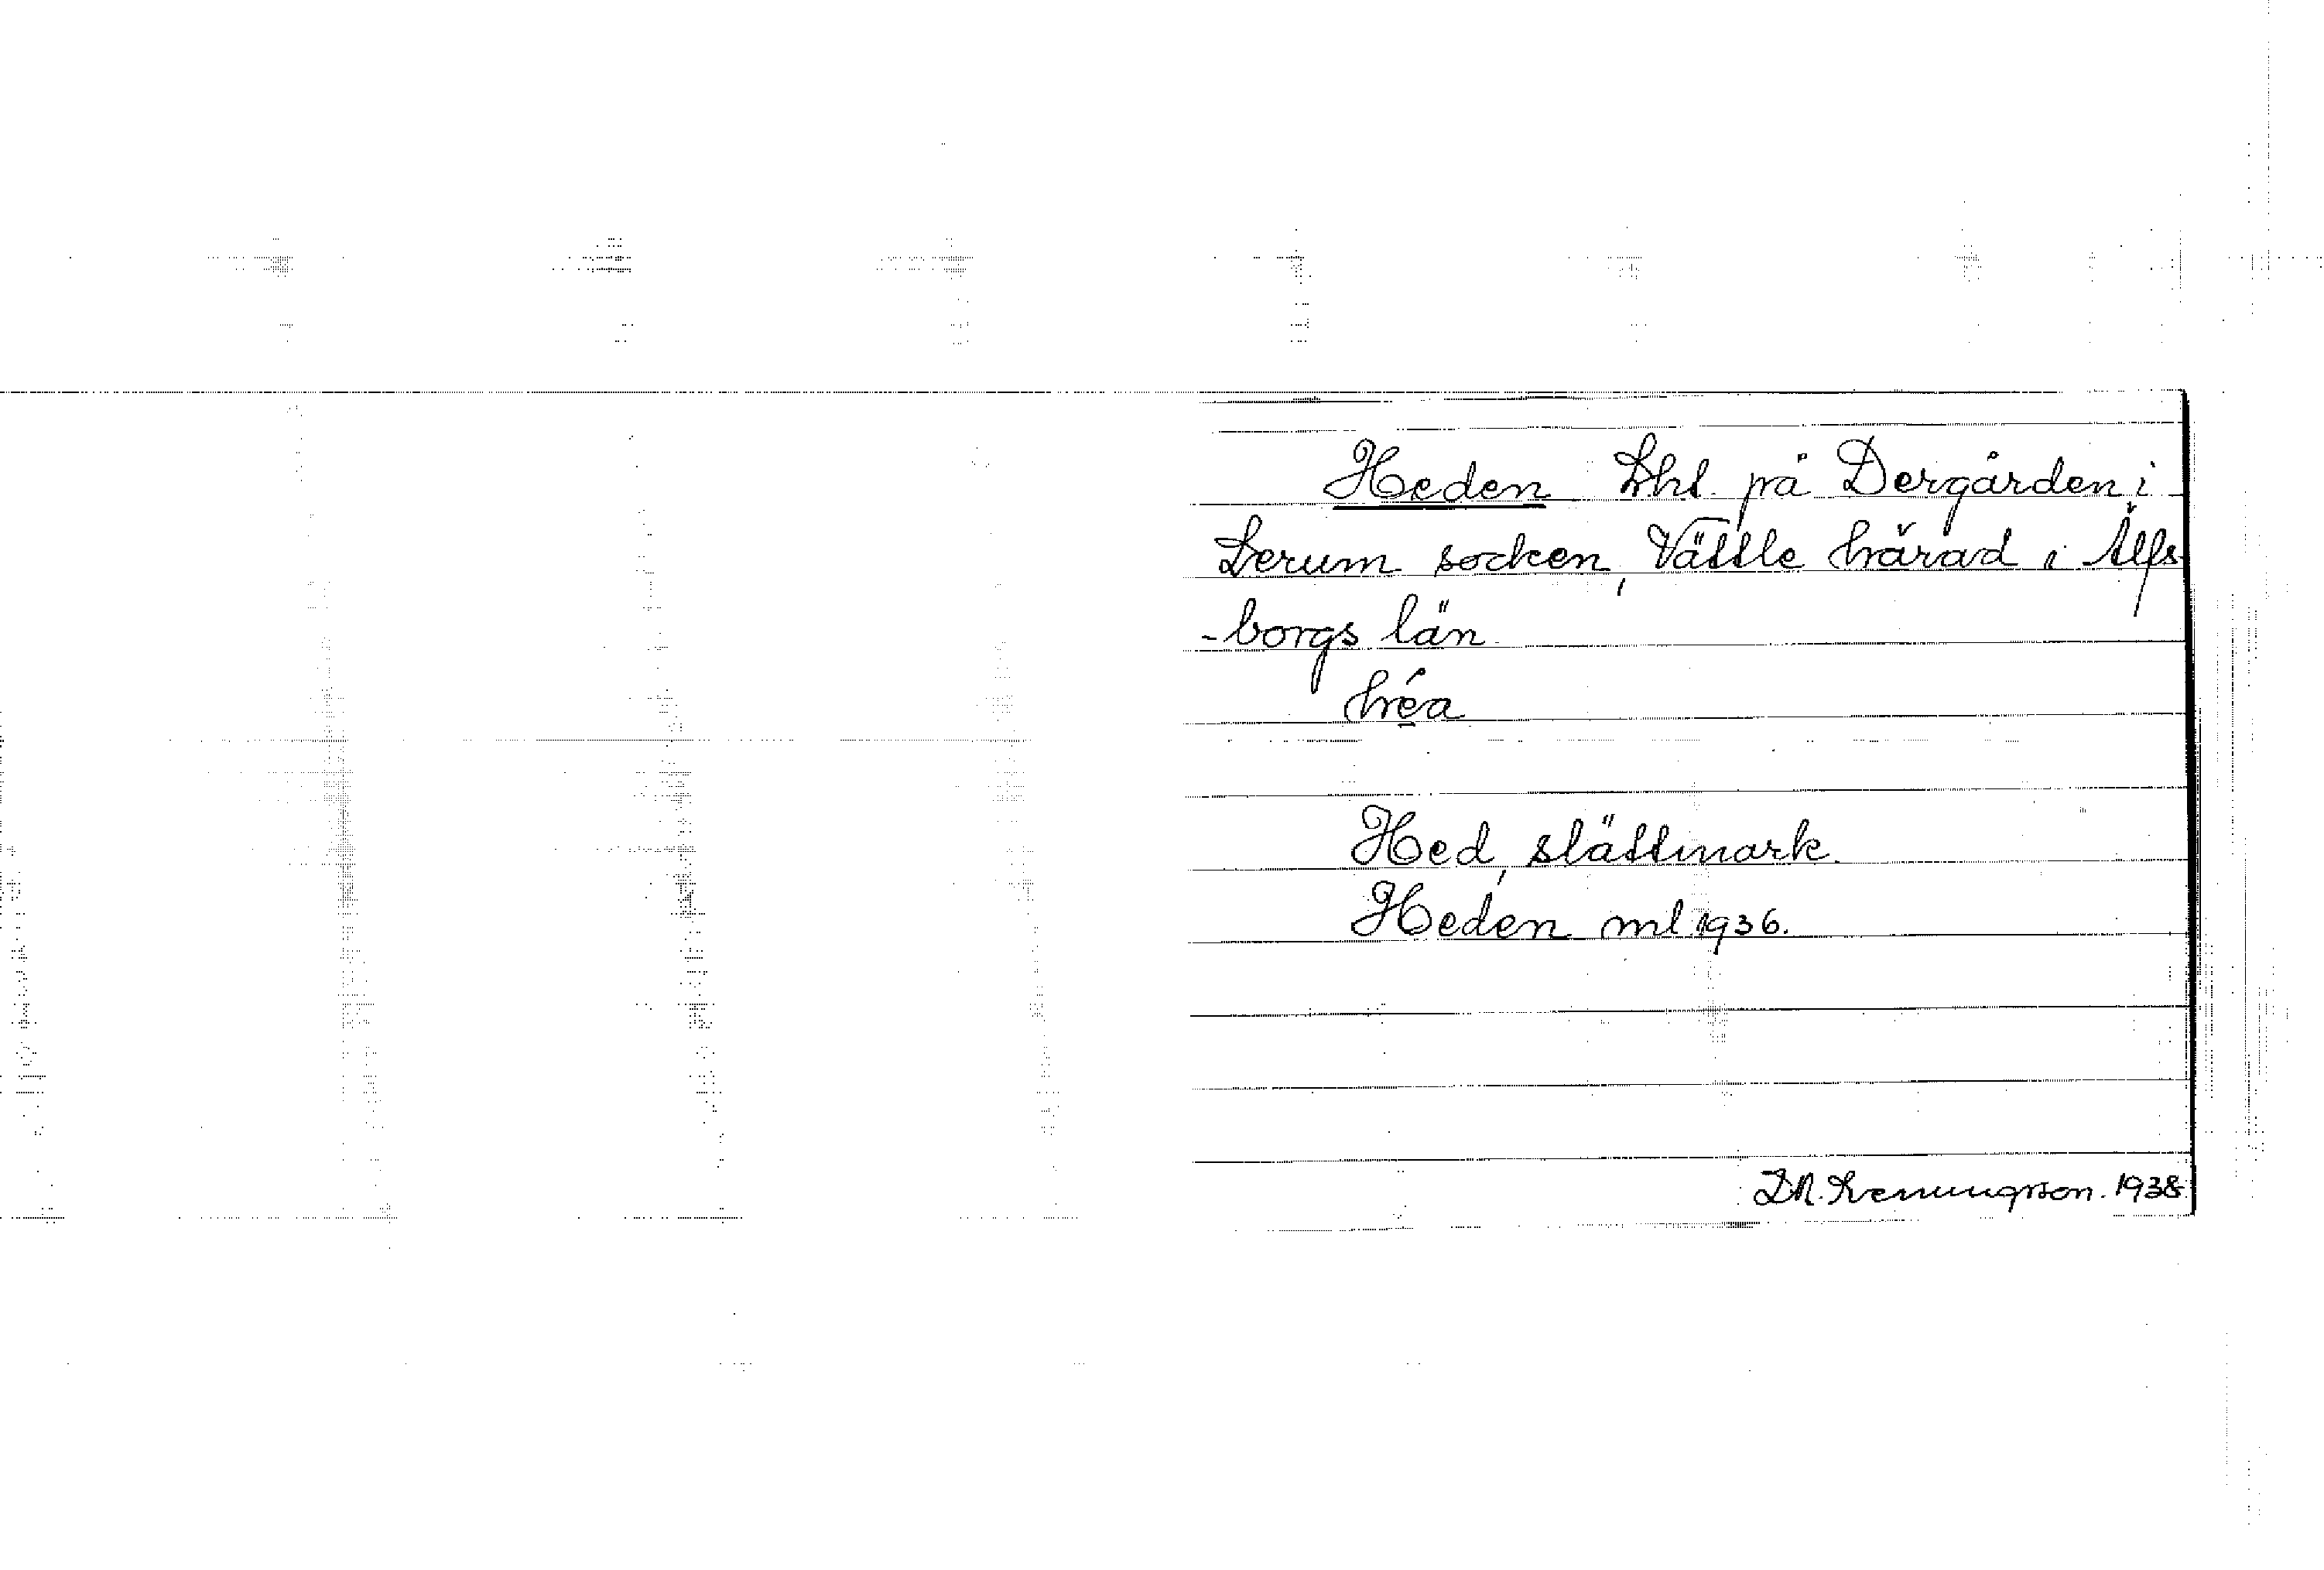 Heden Lht. på Dergården i
Lerum socken, Vättle härad i Älfs
-borgs län
héa
Hed, slättmark.
Heden ml 1936.
1938